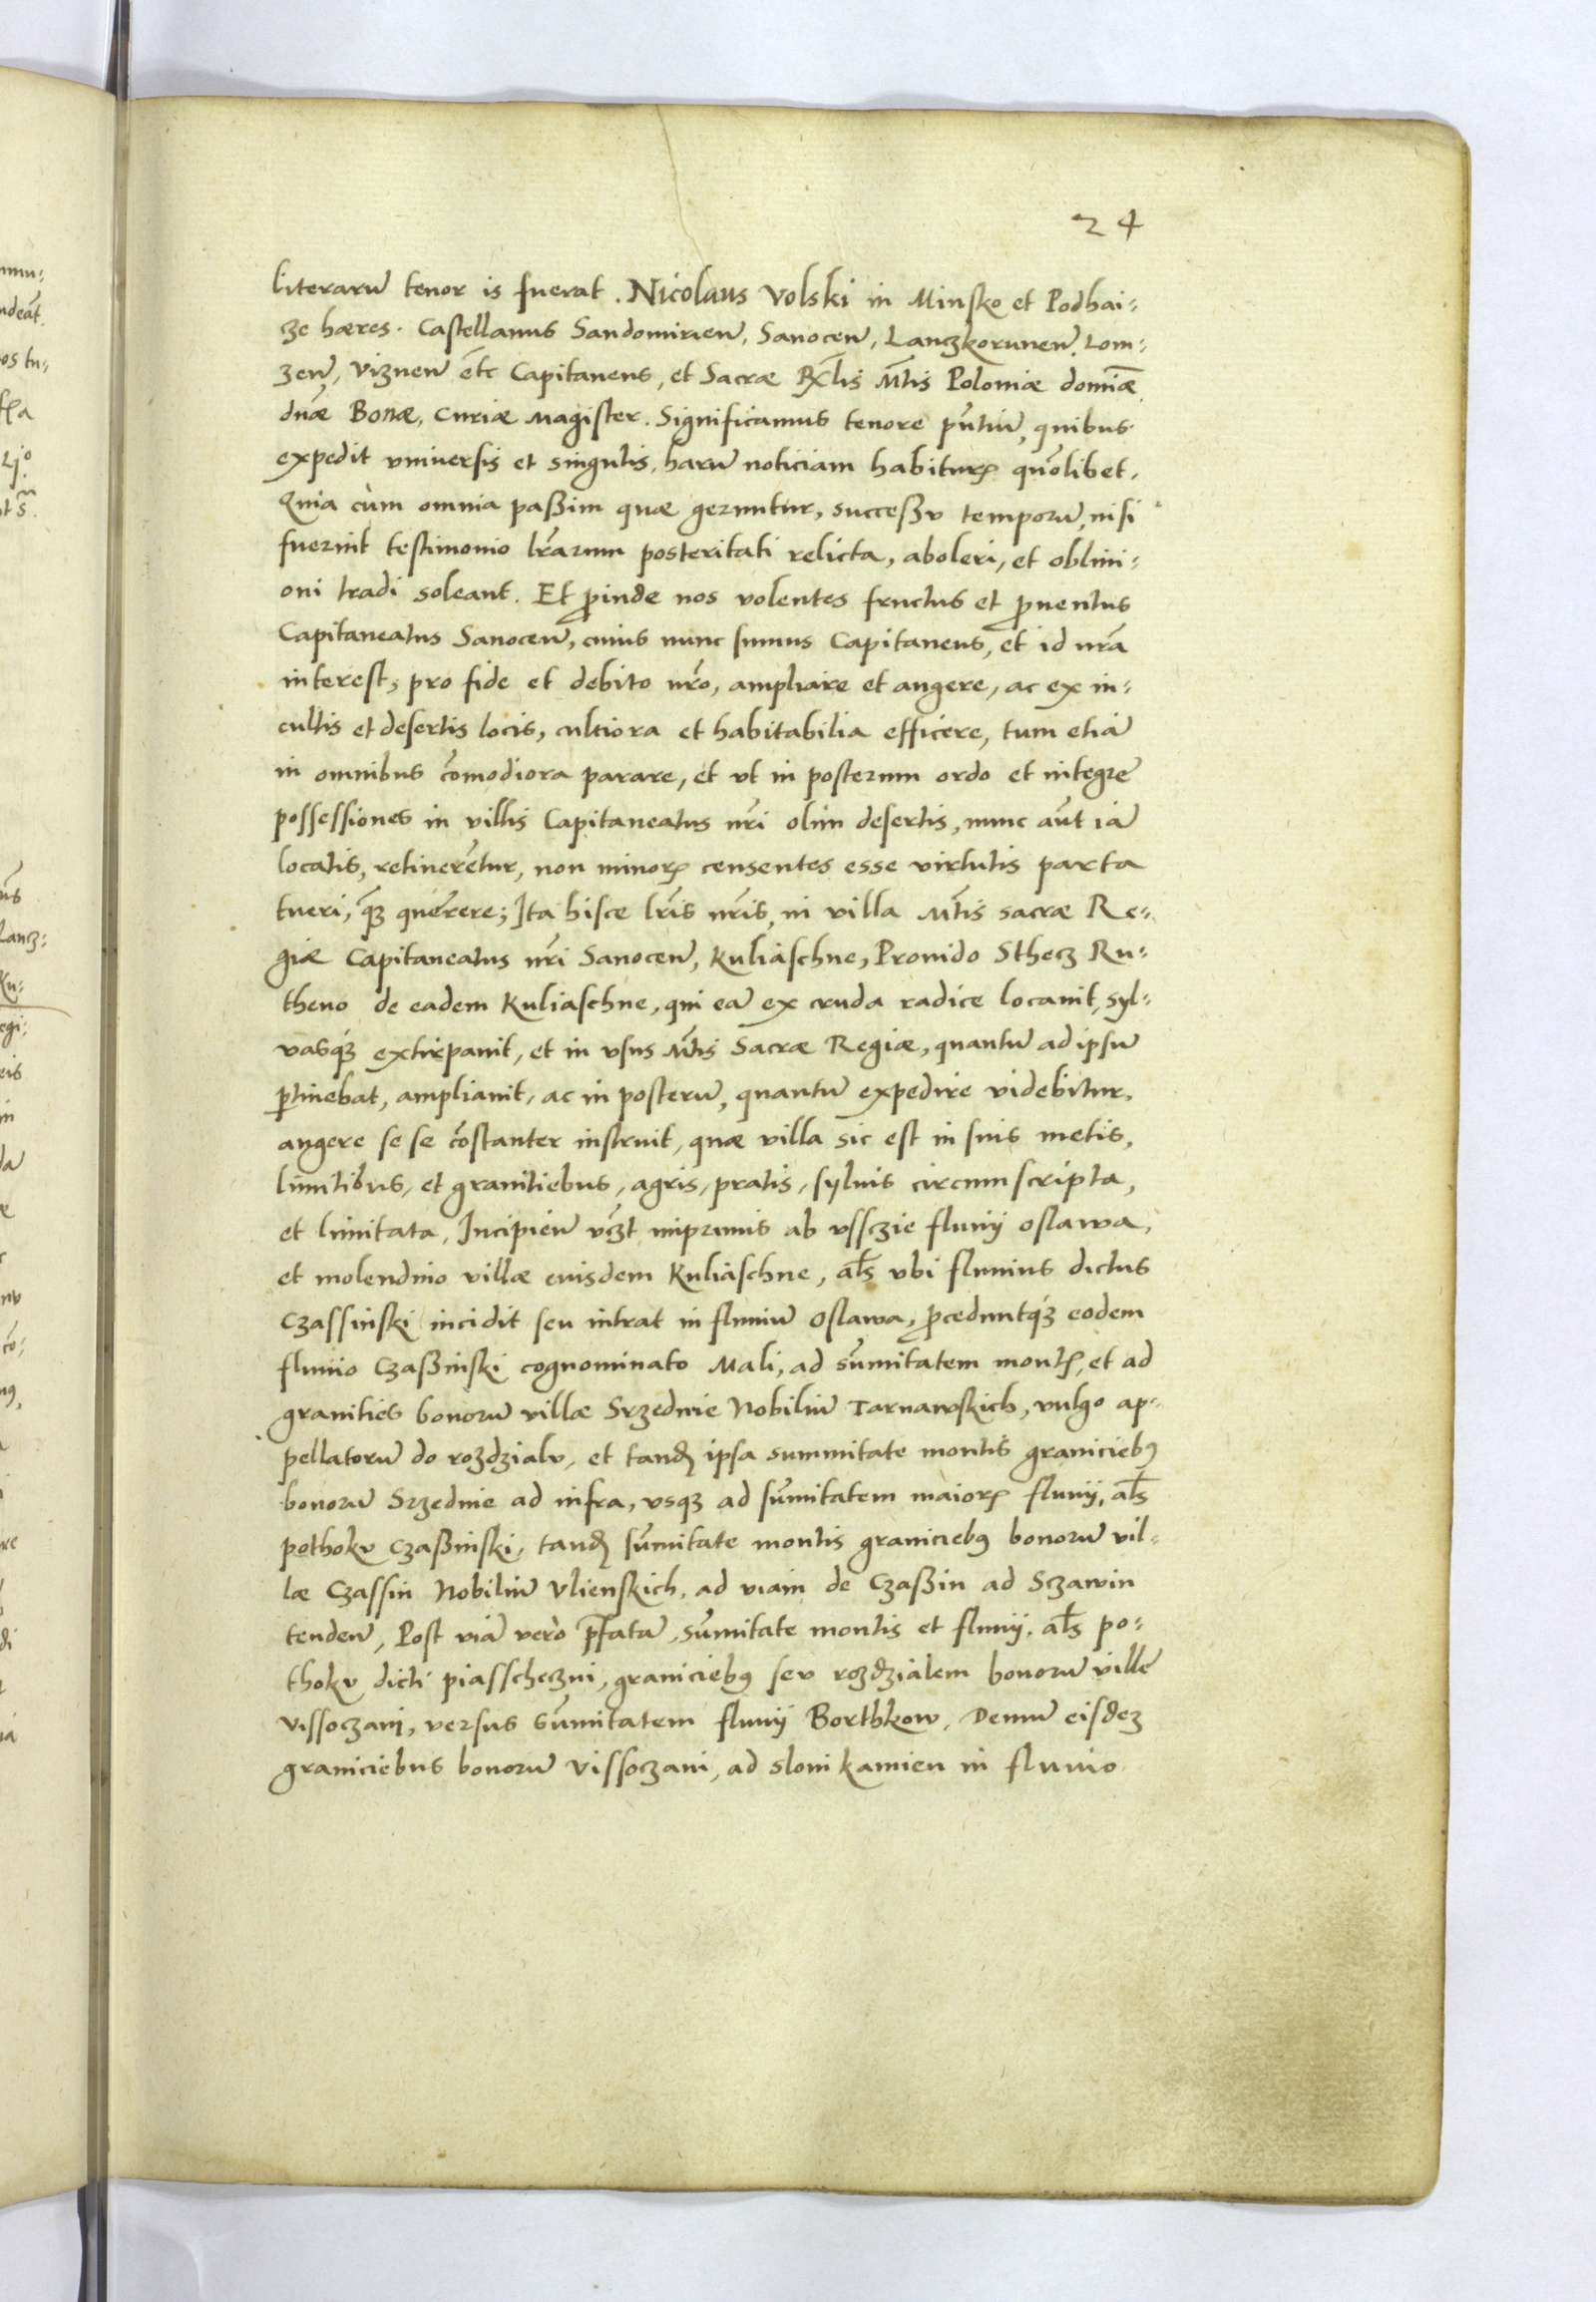 24
literarũ tenor is fuerat. Nicolaus Volski in Minsko et Podhai:
ze hæres. Castellanus Sandomirieñ, Sanoceñ, Lanczkoruneñ, Lom:
zeñ, Vizneñ etc̃ Capitaneus, et Sacræ Rx̃lis Mt̃is Poloniæ domiæ̃
dnæ̃ Bonæ, Curiæ Magister. Significamus tenore pñtiũ, quibus
expedit vniuersis et singulis, harũ noticiam habituꝝ quõlibet.
Quia cùm omnia paßim quæ geruntur, succeßv temporũ, nisi
fuerint testimonio lr̃arum posteritati relicta, aboleri, et obliui:
oni tradi soleant. Et ꝓinde nos volentes fructus et ꝓuentus
Capitaneatus Sanoceñ, cuius nunc sumus Capitaneus, et id nrã
interest, pro fide et debito nrõ, ampliare et augere, ac ex in:
cultis et desertis locis, cultiora et habitabilia efficere, tum etiã
in omnibus cõmodiora parare, et vt in posterum ordo et integrẽ
possessiones in villis Capitaneatus nrĩ olim desertis, nunc aũt iã
locatis, retinerẽtur, non minoꝝ censentes esse virtutis parta
tueri, q̃ꝫ quęrere; Ita hisce lrĩs nrĩs, in villa Mt̃is sacræ Re:
giæ Capitaneatus nrĩ Sanoceñ, Kuliaschne, Prouido Sthecz Ru:
theno de eadem Kuliaschne, qui eã ex cruda radice locauit, syl:
vasqꝫ extirpauit, et in vsus Mt̃is Sacræ Regiæ, quantũ ad ipsũ
ꝑtinebat, ampliauit, ac in posterũ, quantũ expedire videbitur,
augere se se cõstanter instruit, quæ villa sic est in suis metis,
limitibus, et granitiebus, agris, pratis, syluis circumscripta,
et limitata, Incipieñ vcꝫt inprimis ab vssczie fluuij Oslawa,
et molendino villæ euisdem Kuliaschne, al̃s vbi fluuius dictus
Czassinski incidit seu intrat in fluuiũ Oslawa, ꝓceduntqꝫ eodem
fluuio Czaßinski cognominato Mali, ad sũmitatem montꝭ, et ad
granities bonorũ villæ Srzednie Nobiliũ Tarnawskich, vulgo ap:
pellatorũ do rozdzialv, et tandꝫ ipsa summitate montis graniciebꝰ
bonorũ Srzednie ad infra, vsqꝫ ad sũmitatem maioꝝ fluuij, al̃s
pothokv Czaßinski, tandꝫ sũmitate montis graniciebꝰ bonorũ vil:
læ Czassin Nobiliũ Vlienskich, ad viam de Czaßin ad Sczawin
tendeñ, Post viã verò p̃fatã, sũmitate montis et fluuij, al̃s po:
thokv dicti piasscheczni, graniciebꝰ sev rozdzialem bonorũ villę
Vissoczani, versus sũmitatem fluuij Borthkow, Demũ eisdeꝫ
graniciebus bonorũ Vissoczani, ad sloni kamien in fluuio